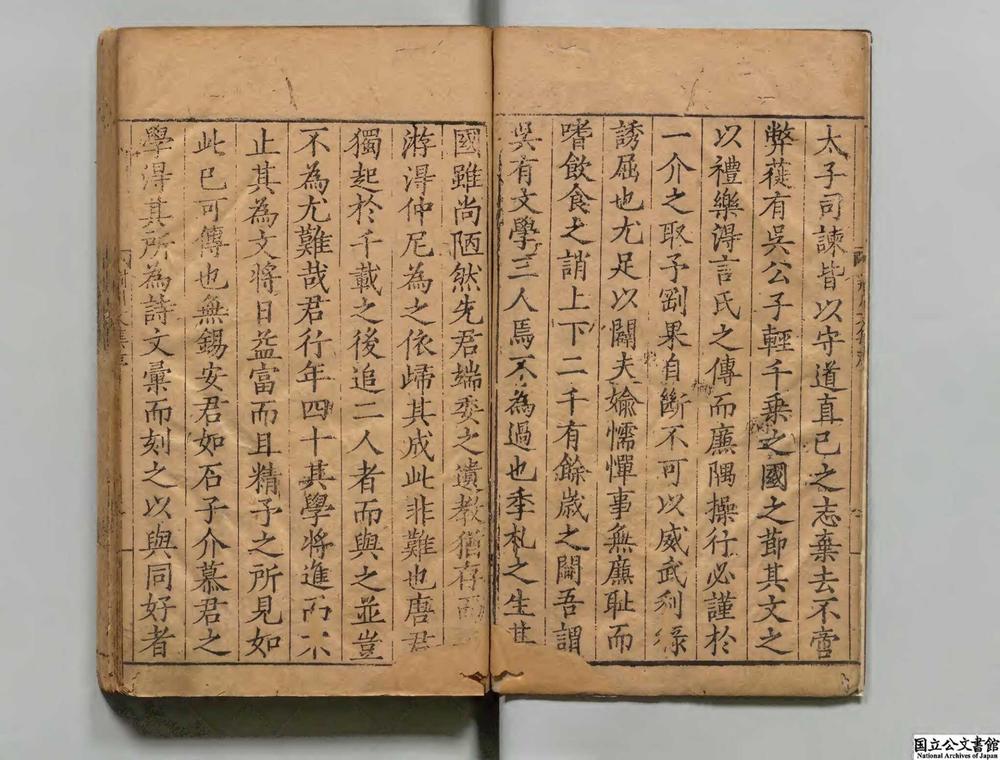 太子司諫皆以守道直已之志棄去不啻
弊蓰有吳公子輕千乗之國之節其文之
以禮樂淂言氏之傳而廉隅操行必謹於
一介之取予剛果自斷不可以威武利祿
誘屈也尤足以闢夫媮懦憚事無廉耻而
嗜飲食之誚上下二千有餘歳之間吾謂
吳有文學三人焉不為過也季札之生其
國雖尚陋然先君端委之遺教猶存
游淂仲尼為之依歸其成此非難也唐君
獨起於千載之後追二人者而與之並豈
不為尤難哉君行年四十其學將進而不
止其為文將日益富而且精予之所見如
此已可傳也無錫安君如石子介慕君之
學淂其所為詩文彙而刻之以與同好者
国立公文書館
National Archives of Japan